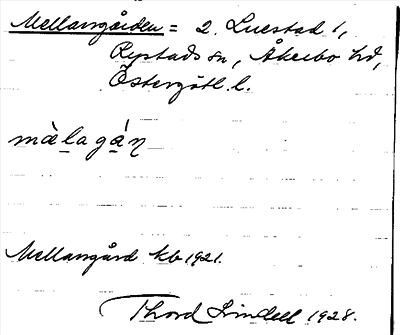 Mellangården = 2. Luestad 1,
Rystads sn, Åkerbo hd,
Östergötl. l.
mὰlagán
Mellangård kb 1921.
Thord Lindell 1928.